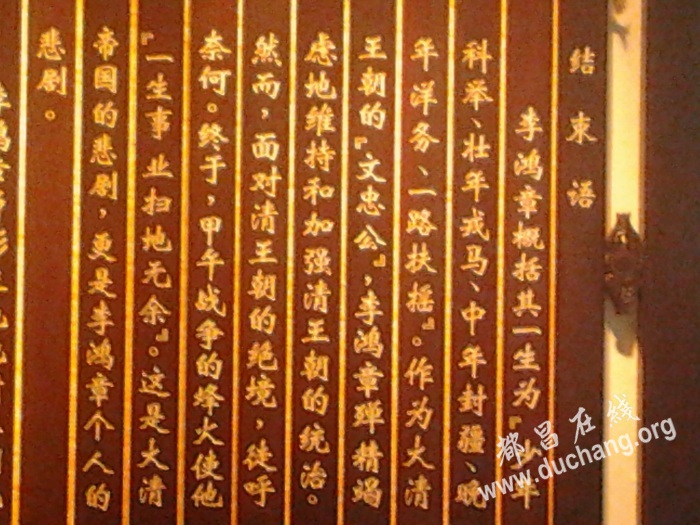 结束语
李鸿章概括其一生为『少年
科举、壮年戎马、中年封疆、晚
年洋务、一路扶摇』。作为大清
王朝的『文忠公』，李鸿章殚精竭
虑地维持和加强清王朝的统治。
然而，面对清王朝的绝境，徒呼
奈何。终于，甲午战争的烽火使他
『一生事业扫地无余』。这是大清
帝国的悲剧，更是李鸿章个人的
悲剧。
都昌在线
www.duchang.org